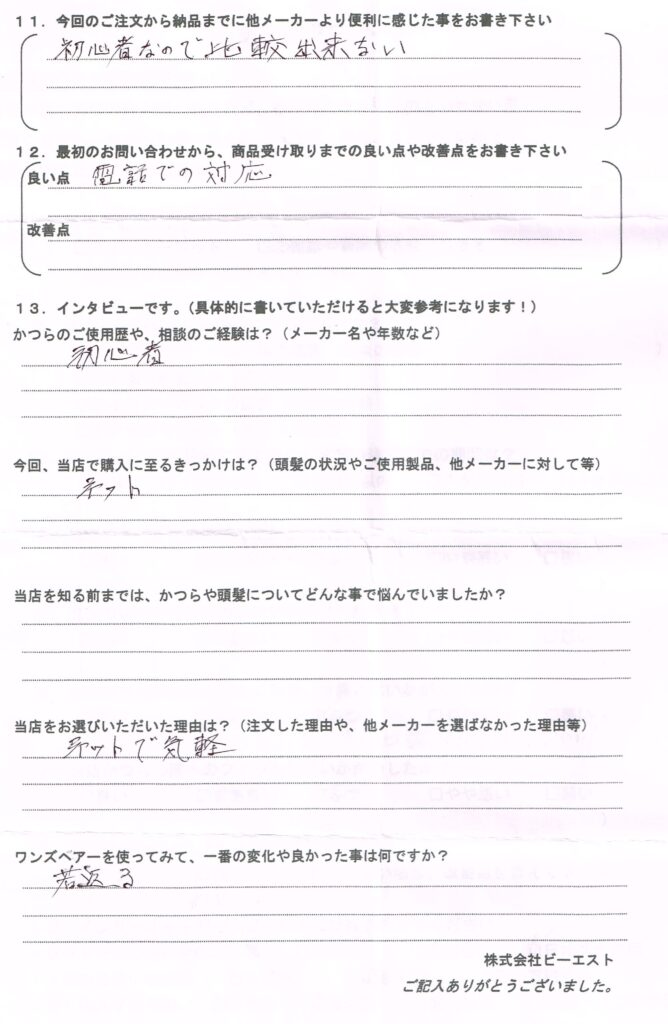 11．今回のご注文から納品までに他メーカーより便利に感じた事をお書き下さい
初心者なので比較出来ない
12．最初のお問い合わせから、商品受け取りまでの良い点や改善点をお書き下さい
良い点 電話での対応
改善点
13．インタビューです。（具体的に書いていただけると大変参考になります！）
かつらのご使用歴や、相談のご経験は？（メーカー名や年数など）
初心者
今回、当店で購入に至るきっかけは？（頭髪の状況やご使用製品、他メーカーに対して等）
ネット
当店を知る前までは、かつらや頭髪についてどんな事で悩んでいましたか？
当店をお選びいただいた理由は？（注文した理由や、他メーカーを選ばなかった理由等）
ネットで気軽
ワンズヘアーを使ってみて、一番の変化や良かった事は何ですか？
若返る
株式会社ビーエスト
ご記入ありがとうございました。